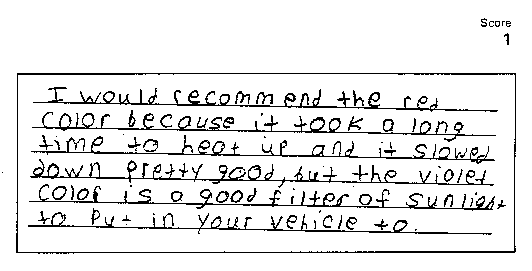 Score
1
I would recommend the red
color because it took a long
time to heat up and it slowed
down pretty good, but the violet
color is a good filter of sunlight
to put in your vehicle to.